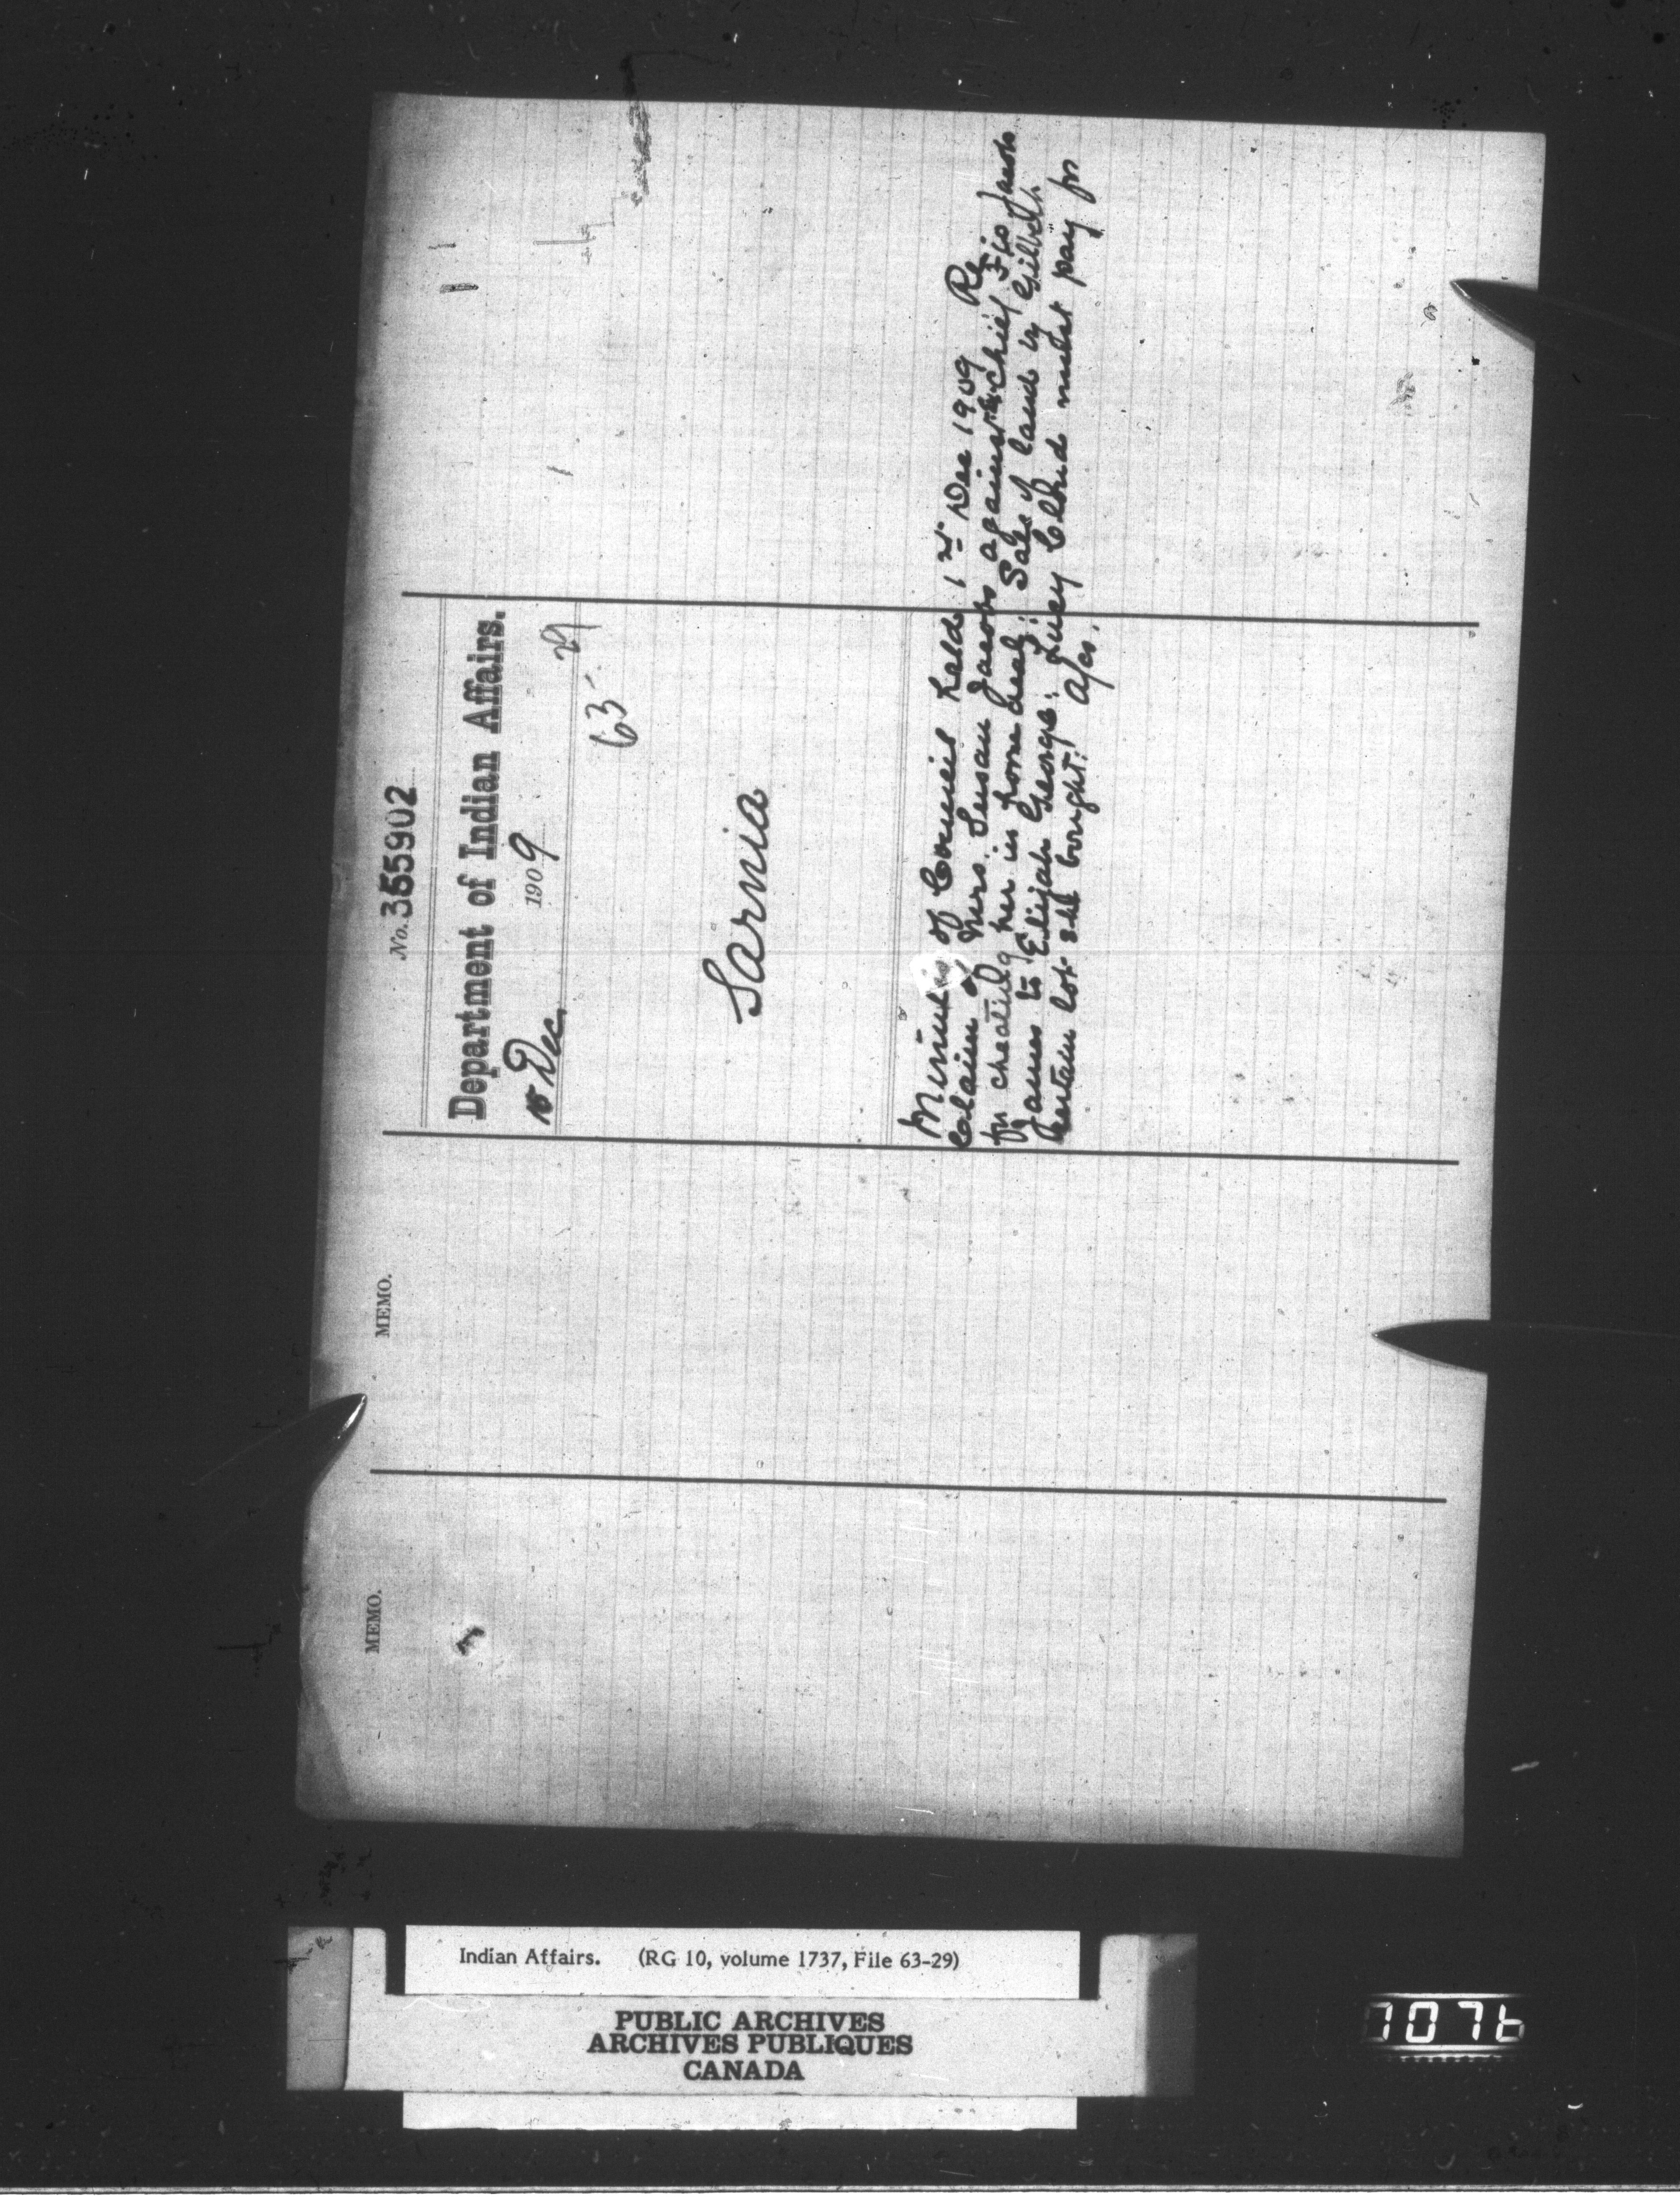 No. 355902
Department of Indian Affairs.
10 Dec. 1909
63-29
Sarnia
Minutes of Council held 1st Dec 1909 Re
Claim of Mrs. Susan Jacobs against Chief Jacobs
for cheating her in horse deal; Sale of land by Gilbert
James to Elijah George; Lucy must pay for
certain lot she bought.
MEMO.
MEMO.
Indian Affairs. (RG 10, volume 1737, File 63-29)
PUBLIC ARCHIVES
ARCHIVES PUBLIQUES
CANADA
7076